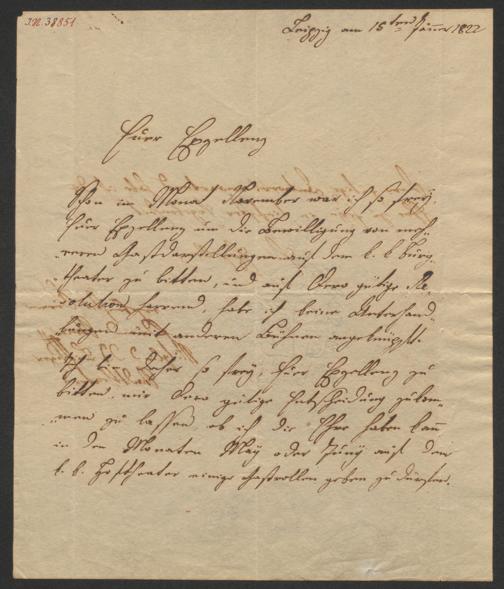 I.N. 38851
Leipzig am 15ten Jänner 1822
Euer Exzellenz
Schon im Monat November war ich so frey,
Euer Exzellenz um die Bewilligung von meh-
reren Gastdarstellungen auf dem k. k. Burg-
theater zu bitten, und auf Dero gütige Re-
solution harrend, habe ich keine Unterhand-
lungen mit anderen Bühnen angeknüpft.
Ich bin daher so frey, Euer Exzellenz zu
bitten, mir Dero gütige Entscheidung zukom-
men zu lassen, ob ich die Ehre haben kann
in den Monaten May oder Juny auf dem
k. k. Hoftheater einige Gastrollen geben zu dürfen.